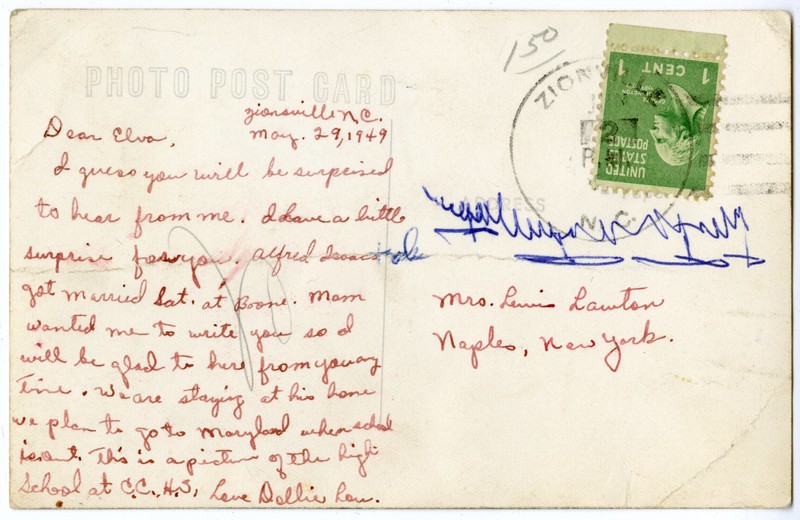 PHOTO POST CARD
150
ZIONVILLE
N.C.
1 CENT 1
UNITED
STATES
POSTAGE
ADDRESS
Zionsville N.C.
May. 29, 1949
Dear Elva,
I guess you will be surprised
to hear from me. I have a little
surprise for you. Alfred Isaacs
got married Sat. at Boone. Mom
wanted me to write you so I
will be glad to here from you any
time. We are staying at his home
we plan to go to Maryland when school
is out. This is a picture of the high
School at C.C.H.S. Love Dollie Lou.
Mrs. Lewis Lawton
Naples, New York.